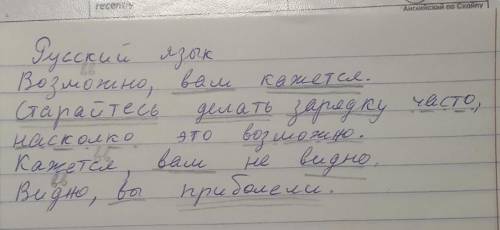 recently
Английский по Скайпу
Русский язык
Возможно, вам кажется.
Старайтесь делать зарядку часто,
насколко это возможно.
Кажется, вам не видно.
Видно, вы приболели.